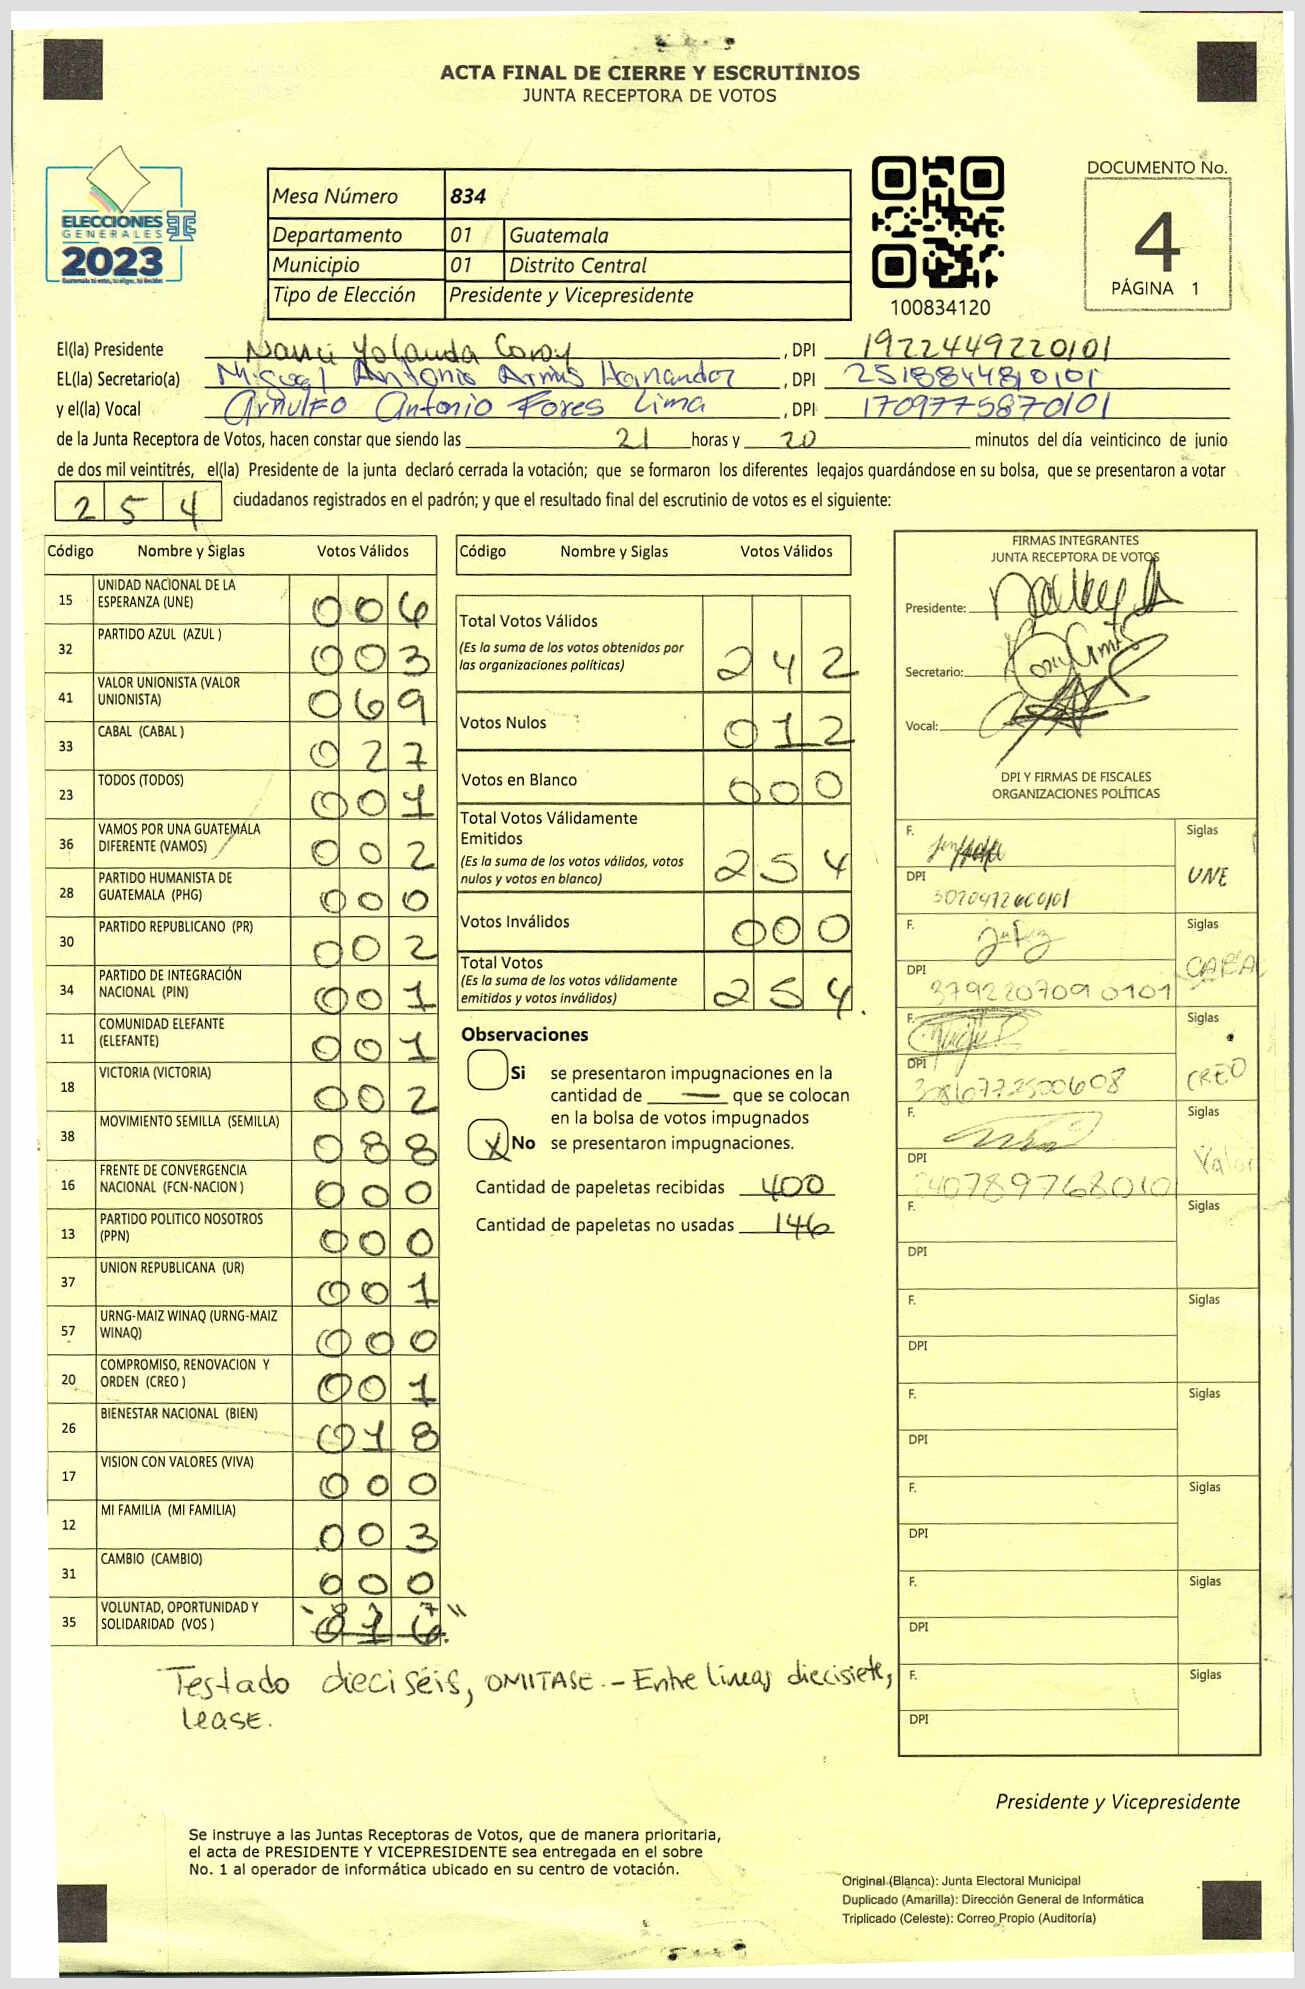 ACTA FINAL DE CIERRE Y ESCRUTINIOS
JUNTA RECEPTORA DE VOTOS
ELECCIONES
GENERALES
2023
Mesa Número 834
Departamento 01 Guatemala
Municipio 01 Distrito Central
Tipo de Elección Presidente y Vicepresidente
100834120
DOCUMENTO No.
4
PÁGINA 1
El(la) Presidente Nanci Yolanda , DPI 1922449220101
EL(la) Secretario(a) Miguel Antonio Armas Hernandez , DPI 2518844810101
y el(la) Vocal Arnulfo Antonio Fores Lima , DPI 1709775870101
de la Junta Receptora de Votos, hacen constar que siendo las 21 horas y 20 minutos del día veinticinco de junio
de dos mil veintitrés, el(la) Presidente de la junta declaró cerrada la votación; que se formaron los diferentes legajos guardándose en su bolsa, que se presentaron a votar
254 ciudadanos registrados en el padrón; y que el resultado final del escrutinio de votos es el siguiente:
Código Nombre y Siglas Votos Válidos
15 UNIDAD NACIONAL DE LA
ESPERANZA (UNE) 006
32 PARTIDO AZUL (AZUL ) 003
41 VALOR UNIONISTA (VALOR
UNIONISTA) 069
33 CABAL (CABAL ) 027
23 TODOS (TODOS) 001
36 VAMOS POR UNA GUATEMALA
DIFERENTE (VAMOS) 002
28 PARTIDO HUMANISTA DE
GUATEMALA (PHG) 000
30 PARTIDO REPUBLICANO (PR) 002
34 PARTIDO DE INTEGRACIÓN
NACIONAL (PIN) 001
11 COMUNIDAD ELEFANTE
(ELEFANTE) 001
18 VICTORIA (VICTORIA) 002
38 MOVIMIENTO SEMILLA (SEMILLA) 088
16 FRENTE DE CONVERGENCIA
NACIONAL (FCN-NACION ) 000
13 PARTIDO POLITICO NOSOTROS
(PPN) 000
37 UNION REPUBLICANA (UR) 001
57 URNG-MAIZ WINAQ (URNG-MAIZ
WINAQ) 000
20 COMPROMISO, RENOVACION Y
ORDEN (CREO ) 001
26 BIENESTAR NACIONAL (BIEN) 018
17 VISION CON VALORES (VIVA) 000
12 MI FAMILIA (MI FAMILIA) 003
31 CAMBIO (CAMBIO) 000
35 VOLUNTAD, OPORTUNIDAD Y
SOLIDARIDAD (VOS ) 016
Testado dieciséis, OMITASE.- Entre lineas diecisiete,
lease.
Código Nombre y Siglas Votos Válidos
Total Votos Válidos
(Es la suma de los votos obtenidos por
las organizaciones políticas) 242
Votos Nulos 012
Votos en Blanco 000
Total Votos Válidamente
Emitidos
(Es la suma de los votos válidos, votos
nulos y votos en blanco) 254
Votos Inválidos 000
Total Votos
(Es la suma de los votos válidamente
emitidos y votos inválidos) 254.
Observaciones
Si se presentaron impugnaciones en la
cantidad de — que se colocan
en la bolsa de votos impugnados
X No se presentaron impugnaciones.
Cantidad de papeletas recibidas 400
Cantidad de papeletas no usadas 146
FIRMAS INTEGRANTES
JUNTA RECEPTORA DE VOTOS
Presidente:
Secretario:
Vocal:
DPI Y FIRMAS DE FISCALES
ORGANIZACIONES POLÍTICAS
F. Siglas
DPI UNE
F. Siglas
DPI
3792207090101
F. Siglas
DPI CREO
F. Siglas
DPI Valor
F. Siglas
DPI
F. Siglas
DPI
F. Siglas
DPI
F. Siglas
DPI
F. Siglas
DPI
F. Siglas
DPI
Presidente y Vicepresidente
Se instruye a las Juntas Receptoras de Votos, que de manera prioritaria,
el acta de PRESIDENTE Y VICEPRESIDENTE sea entregada en el sobre
No. 1 al operador de informática ubicado en su centro de votación.
Original (Blanca): Junta Electoral Municipal
Duplicado (Amarilla): Dirección General de Informática
Triplicado (Celeste): Correo Propio (Auditoría)